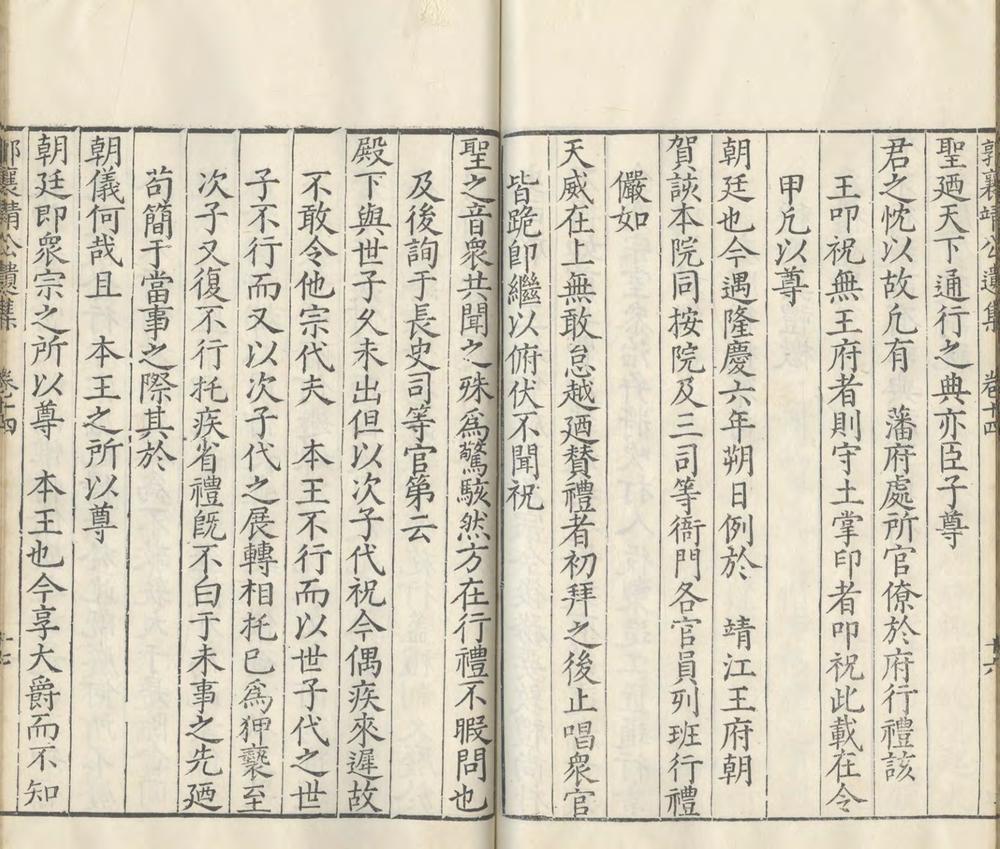 郭襄靖公遺集 卷十四 十六
聖廼天下通行之典亦臣子尊
君之忱以故凢有 藩府處所官僚於府行禮該
王叩祝無王府者則守土掌印者叩祝此載在令
甲凢以尊
朝廷也今遇隆慶六年朔日例於 靖江王府朝
賀該本院同按院及三司等衙門各官員列班行禮
儼如
天威在上無敢怠越廼贊禮者初拜之後止唱衆官
皆跪即繼以俯伏不聞祝
聖之音衆共聞之殊爲驚駭然方在行禮不暇問也
及後詢于長史司等官第云
殿下與世子久未出但以次子代祝今偶疾來遲故
不敢令他宗代夫 本王不行而以世子代之世
子不行而又以次子代之展轉相托已爲狎䙝至
次子又復不行托疾省禮旣不白于未事之先廼
苟簡于當事之際其於
朝儀何哉且 本王之所以尊
朝廷即衆宗之所以尊 本王也今享大爵而不知
郭襄靖公遺集 卷十四 十七